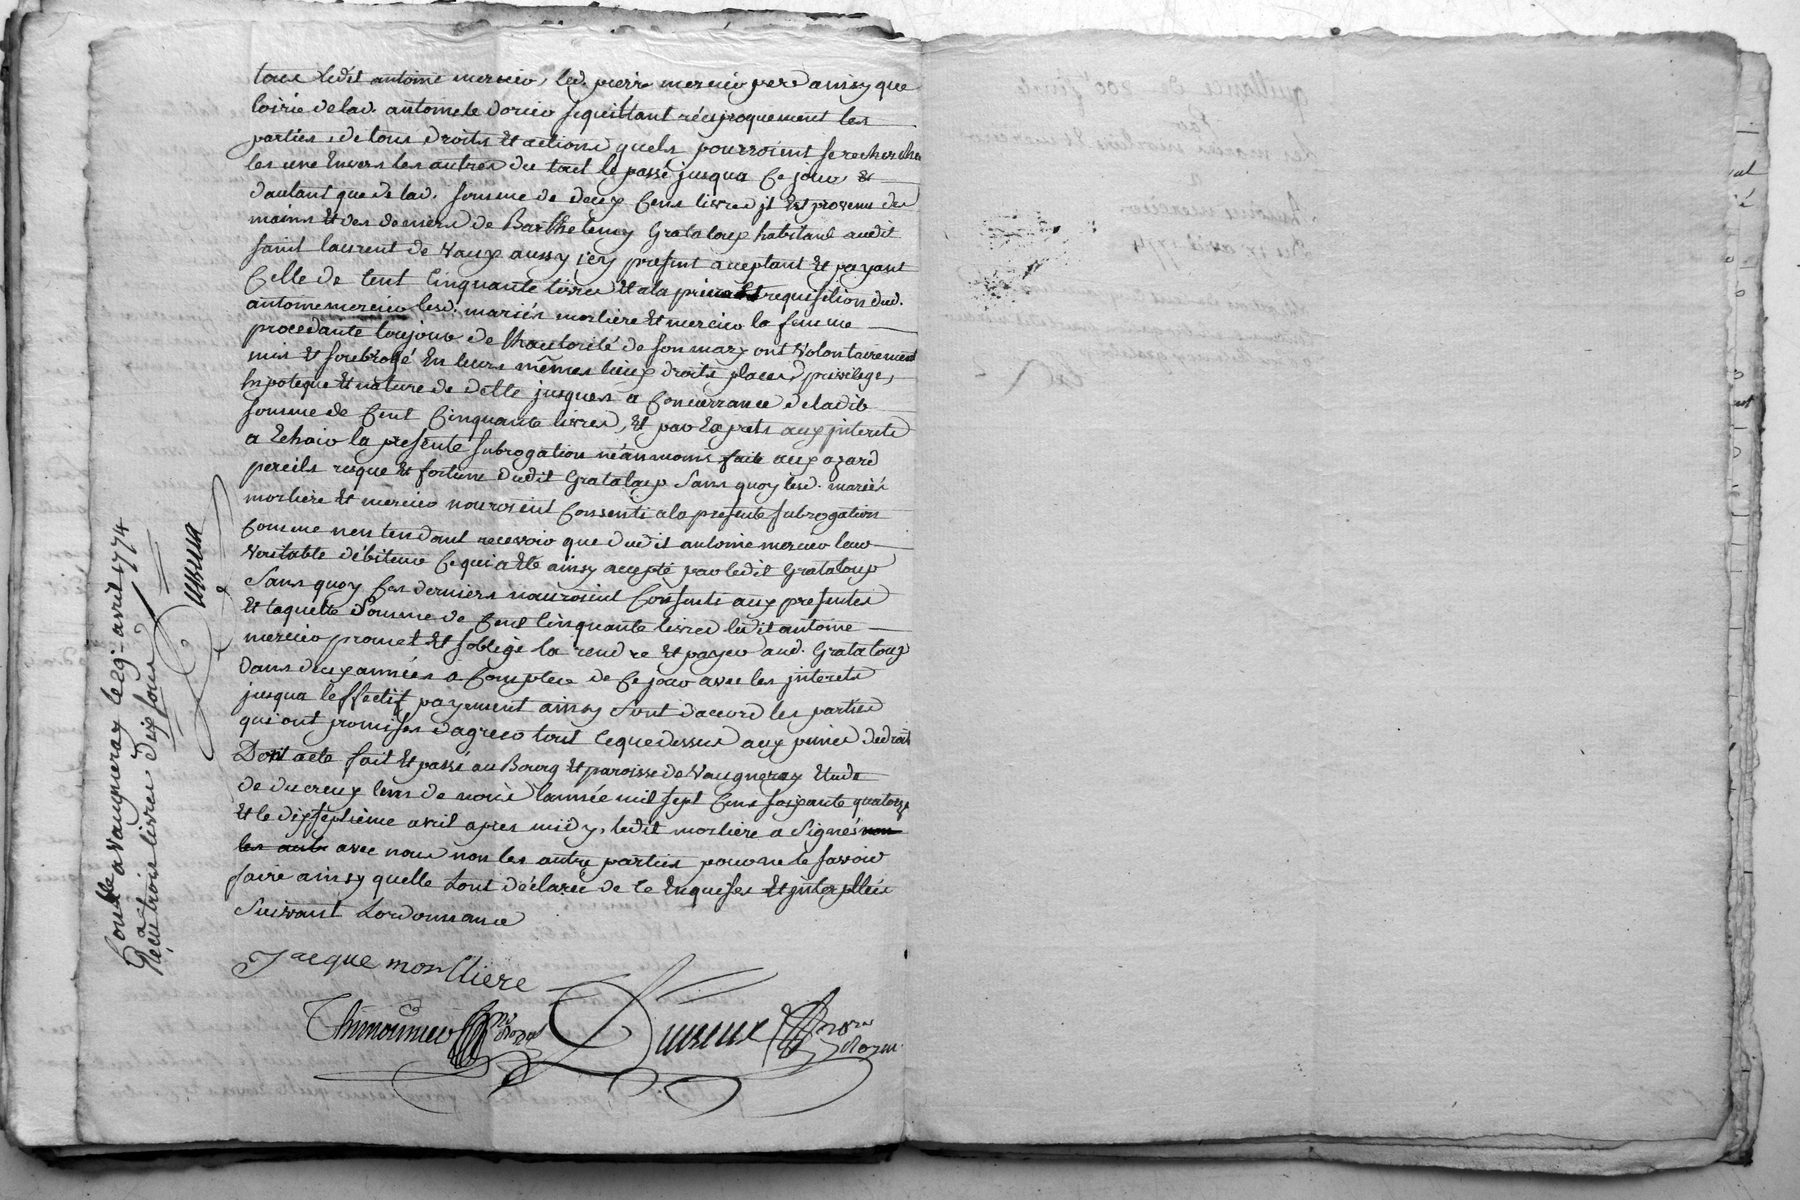 tous ledit antoine mercier, led. pierre mercier pere ainsy que
loirie de lad. antoinete dorier se quittant réciproquement les
parties, de tous droits et actions quels pourroient se rechercher
les une envers les autres du tout le passé jusqua ce jour, et
dautant que de lad. somme de deux cens livres jl est provenu des
mains et des deniers de Barthelemy Grataloup habitant audit
saint laurent de vaux aussy icy present acceptant et payant
celle de cent cinquante livres et a la requisition dud.
antoine mercier lesd. mariés morliere et mercier la femme
procedante toujour de lhautorité de son mary ont volontairement
mis et soubrogé en leurs mêmes lieux droits places privilege,
hipoteque et nature de dette jusques a concurrance de ladite
somme de cent cinquante livres, et par exprets aux jnterets
a echoir la presente subrogation néanmoins faite aux azard
pereils risque et fortune dudit Grataloup sans quoy lesd. mariés
morliere et mercier nauroient consenti a la presente subrogation
comme nentendant recevoir que dudit antoine mercier leur
veritable débiteur ce qui a été ainsy accepté par ledit Grataloup
sans quoy ces derniers nauroient consenti aux presentes
et laquelle somme de cent cinquante livres ledit antoine
mercier promet et soblige la rendre et payer aud. Grataloup
dans deux années a compter de ce jour avec les jnterets
jusqua leffectif payement ainsy sont daccord les parties
qui ont promises dagreer tout ce que dessus aux peines de droit
Dont acte fait et passé au Bourg et paroisse de Vaugneray etude
de ducreux lun de nous lannée mil sept cens soixante quatorze
et le dixseptieme avril apres midy, ledit morliere a signé non
les autr avec nous non les autre parties pour ne le savoir
faire ainsy quelle lont déclarée de ce enquises et jnterpellées
suivant lordonnance
Jacque morlliere
Ducreux
Conttlé a vaugneray le 29e avril 1774
Reçu trois livres dix sous
Ducreux